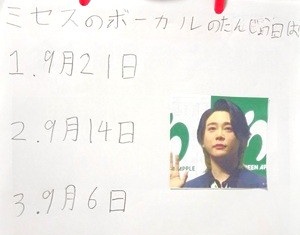 ミセスのボーカルのたんじょう日は
1.9月21日
2.9月14日
3.9月6日
EEN APPLE